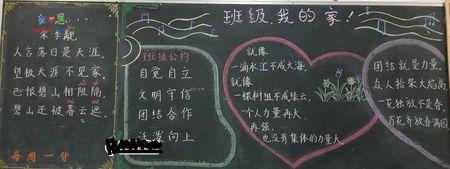 乡思
宋 李觏
人言落日是天涯，
望极天涯不见家。
已恨碧山相阻隔，
碧山还被暮云遮。
每周一背
班级我的家！
班级公约
自觉自立
文明守信
团结合作
活泼向上
就像
一滴水汇不成大海，
就像
一棵树组不成绿云，
一个人力量再大，
再强，
也没有集体的力量大。
团结就是力量，
众人拾柴火焰高，
一花独放不是春，
百花齐放春满园。